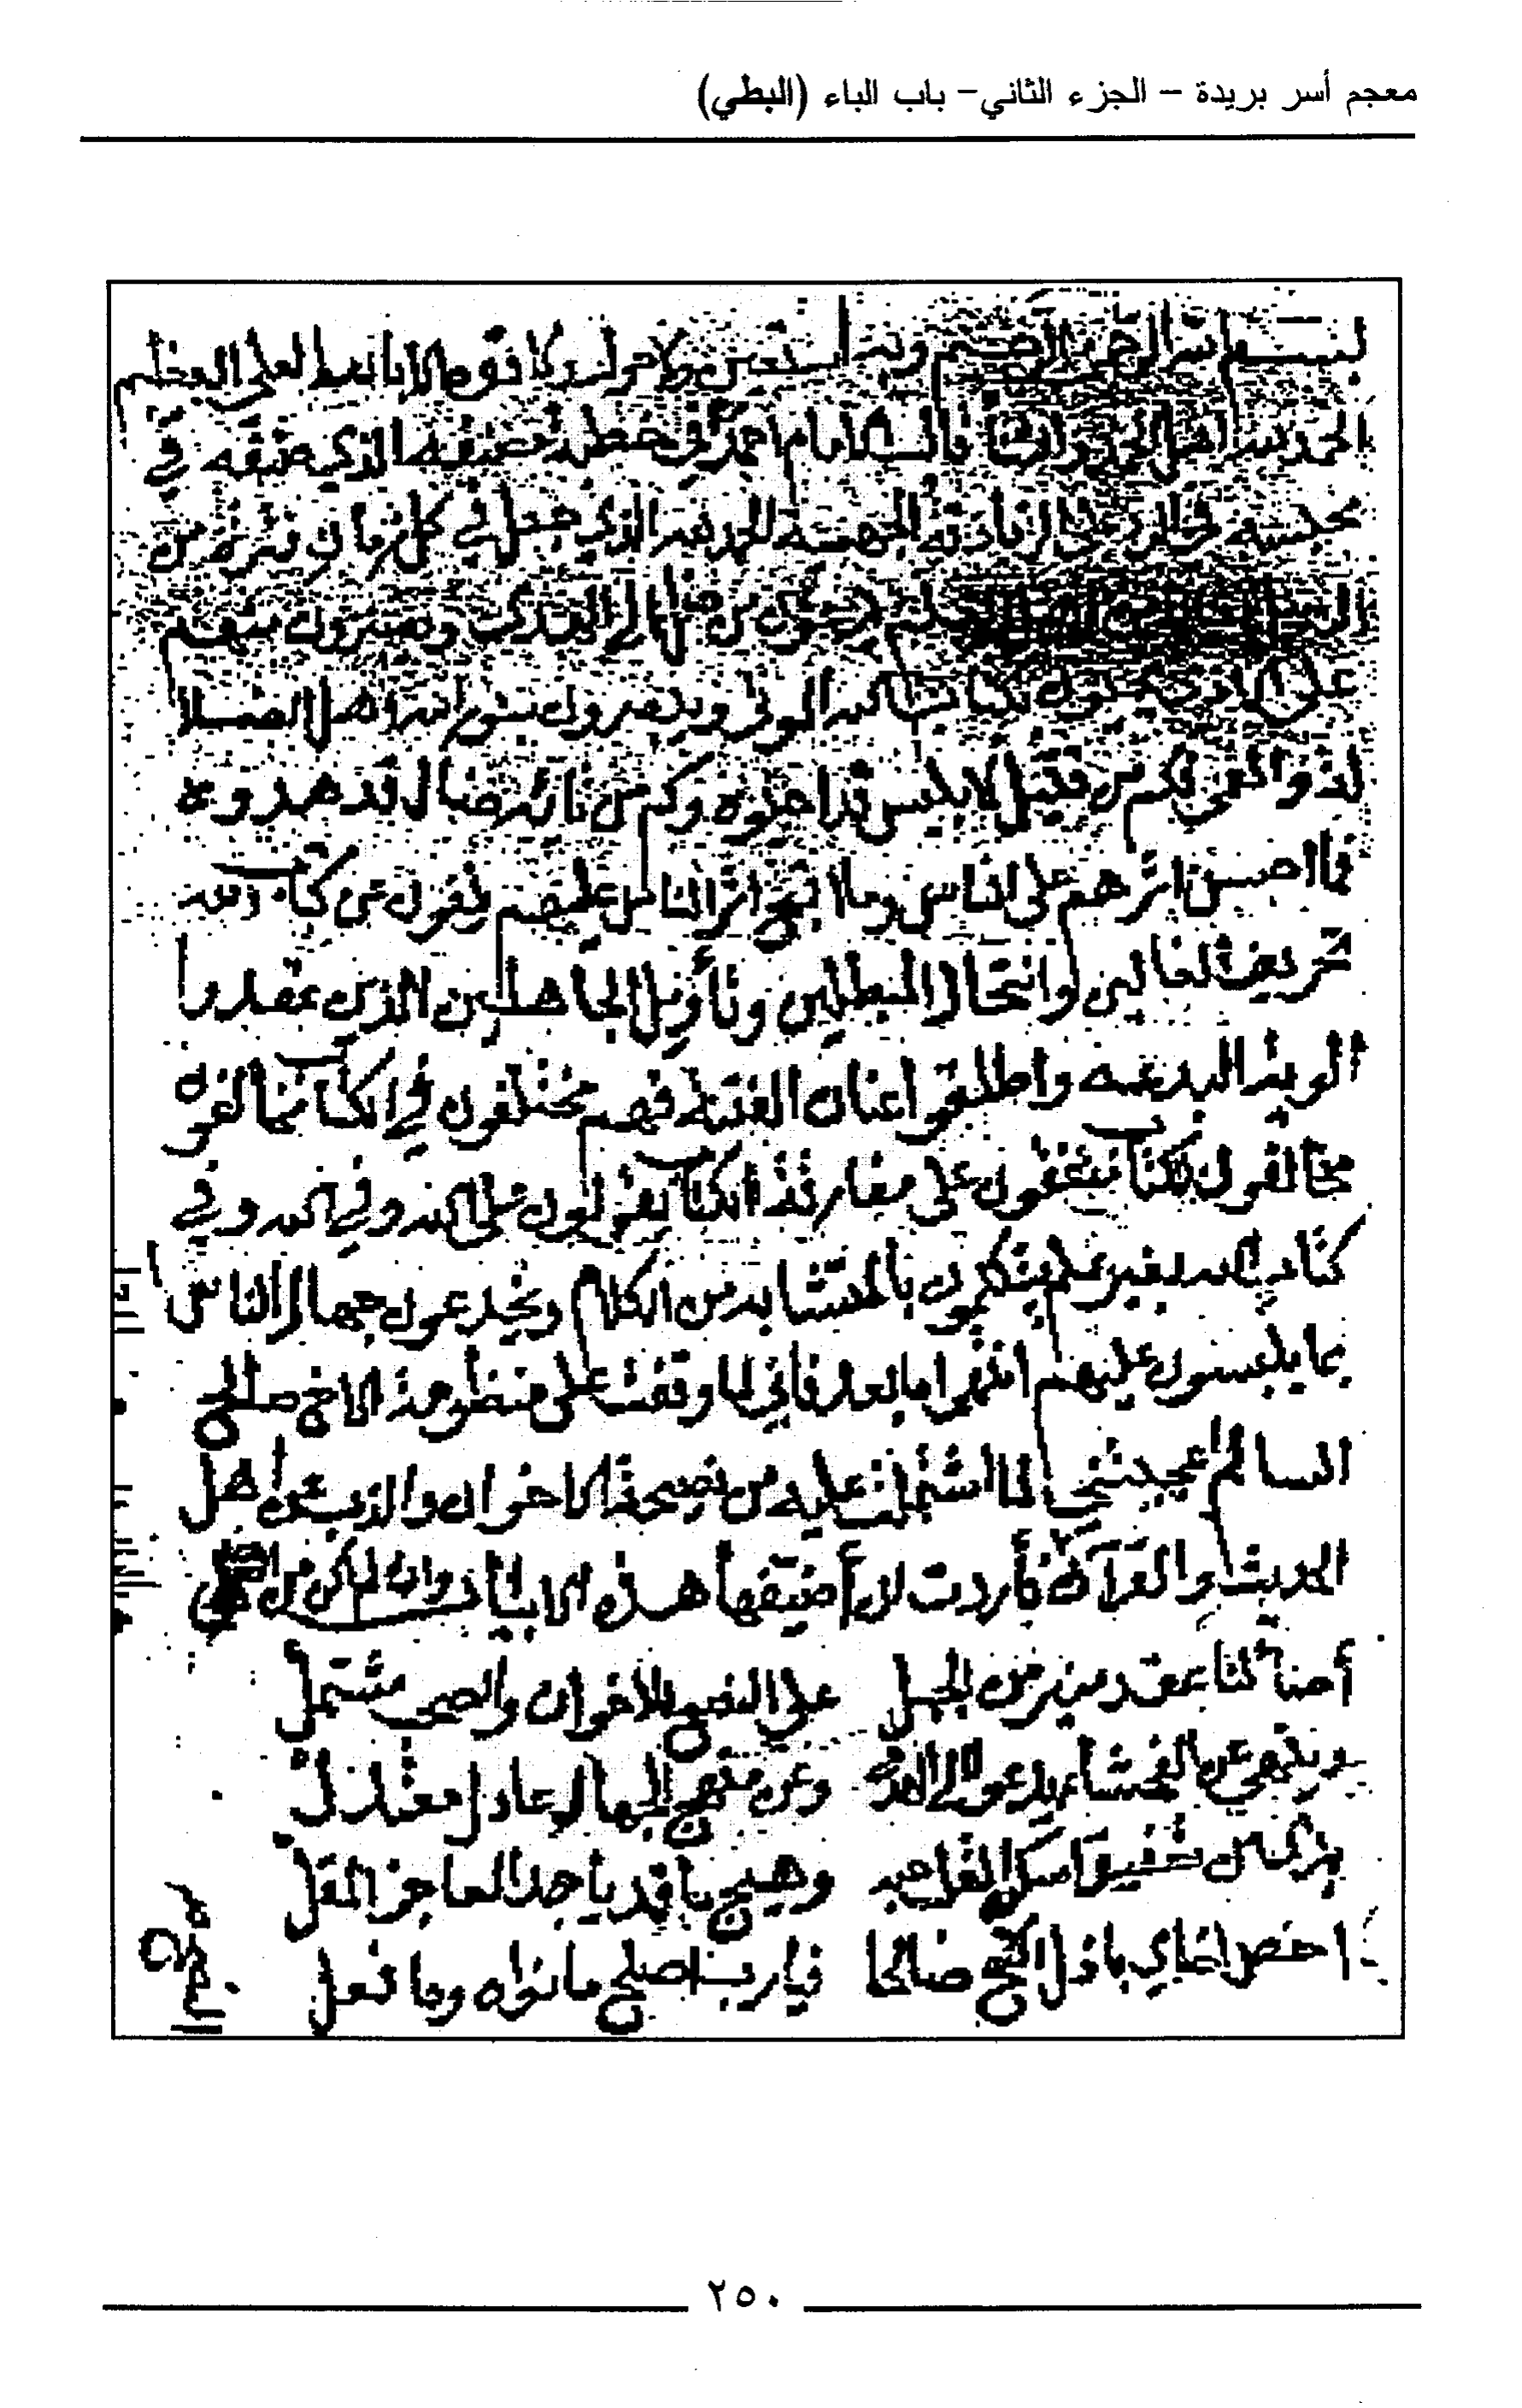 معجم أسر بريدة – الجزء الثاني– باب الباء (البطي)
بسم الله الرحمن الرحيم وبه نستعين ولا حول ولا قوة الا بالله العلي العظيم
الحمد لله قال الامام احمد في خطبة مصنفه الذي صنفه في
الزنادقة الجهمية الحمد لله الذي جعل في كل زمان فترة من
يدعون من ضل الى الهدى ويصبرون منهم
على الاذى يحيون بكتاب الله الموتى ويبصرون بنور الله اهل الضلا
لة والعمى فكم من قتيل لابليس قد احيوه وكم من تائه ضال قد هدوه
فما احسن اثرهم على الناس وما اقبح اثر الناس عليهم ينفون عن كتاب الله
تحريف الغالين وانتحال المبطلين وتأويل الجاهلين الذين عقدوا
الوية البدعه واطلقوا عنان الفتنة فهم مختلفون في الكتاب مخالفون
مخالفون للكتاب متفقون على مفارقة الكتاب يقولون على الله وفي الله وفي
كتاب الله بغير علم يتكلمون بالمتشابه من الكلام ويخدعون جهال الناس
بما يلبسون عليهم انتهى اما بعد فاني لما وقفت على منظومة الاخ صالح
السالم اعجبتني لما اشتملت عليه من نصيحة الاخوان والذب عن اهل
الحديث والقرآن فأردت ان أضيفها هذه الابيات وان لم اكن من اهل
أضا لنا عقد منير من الجبل على النصح للاخوان والصحب مشتمل
وينهى عن الفحشاء يدعو الى الهدى وعن منهج الجهال عادل معتذل
وهيج ما قد يا جد العاجز المقل
اخص اخاي باذل النصح صالحا فيارب اصلح ما نواه وما فعل
٢٥٠